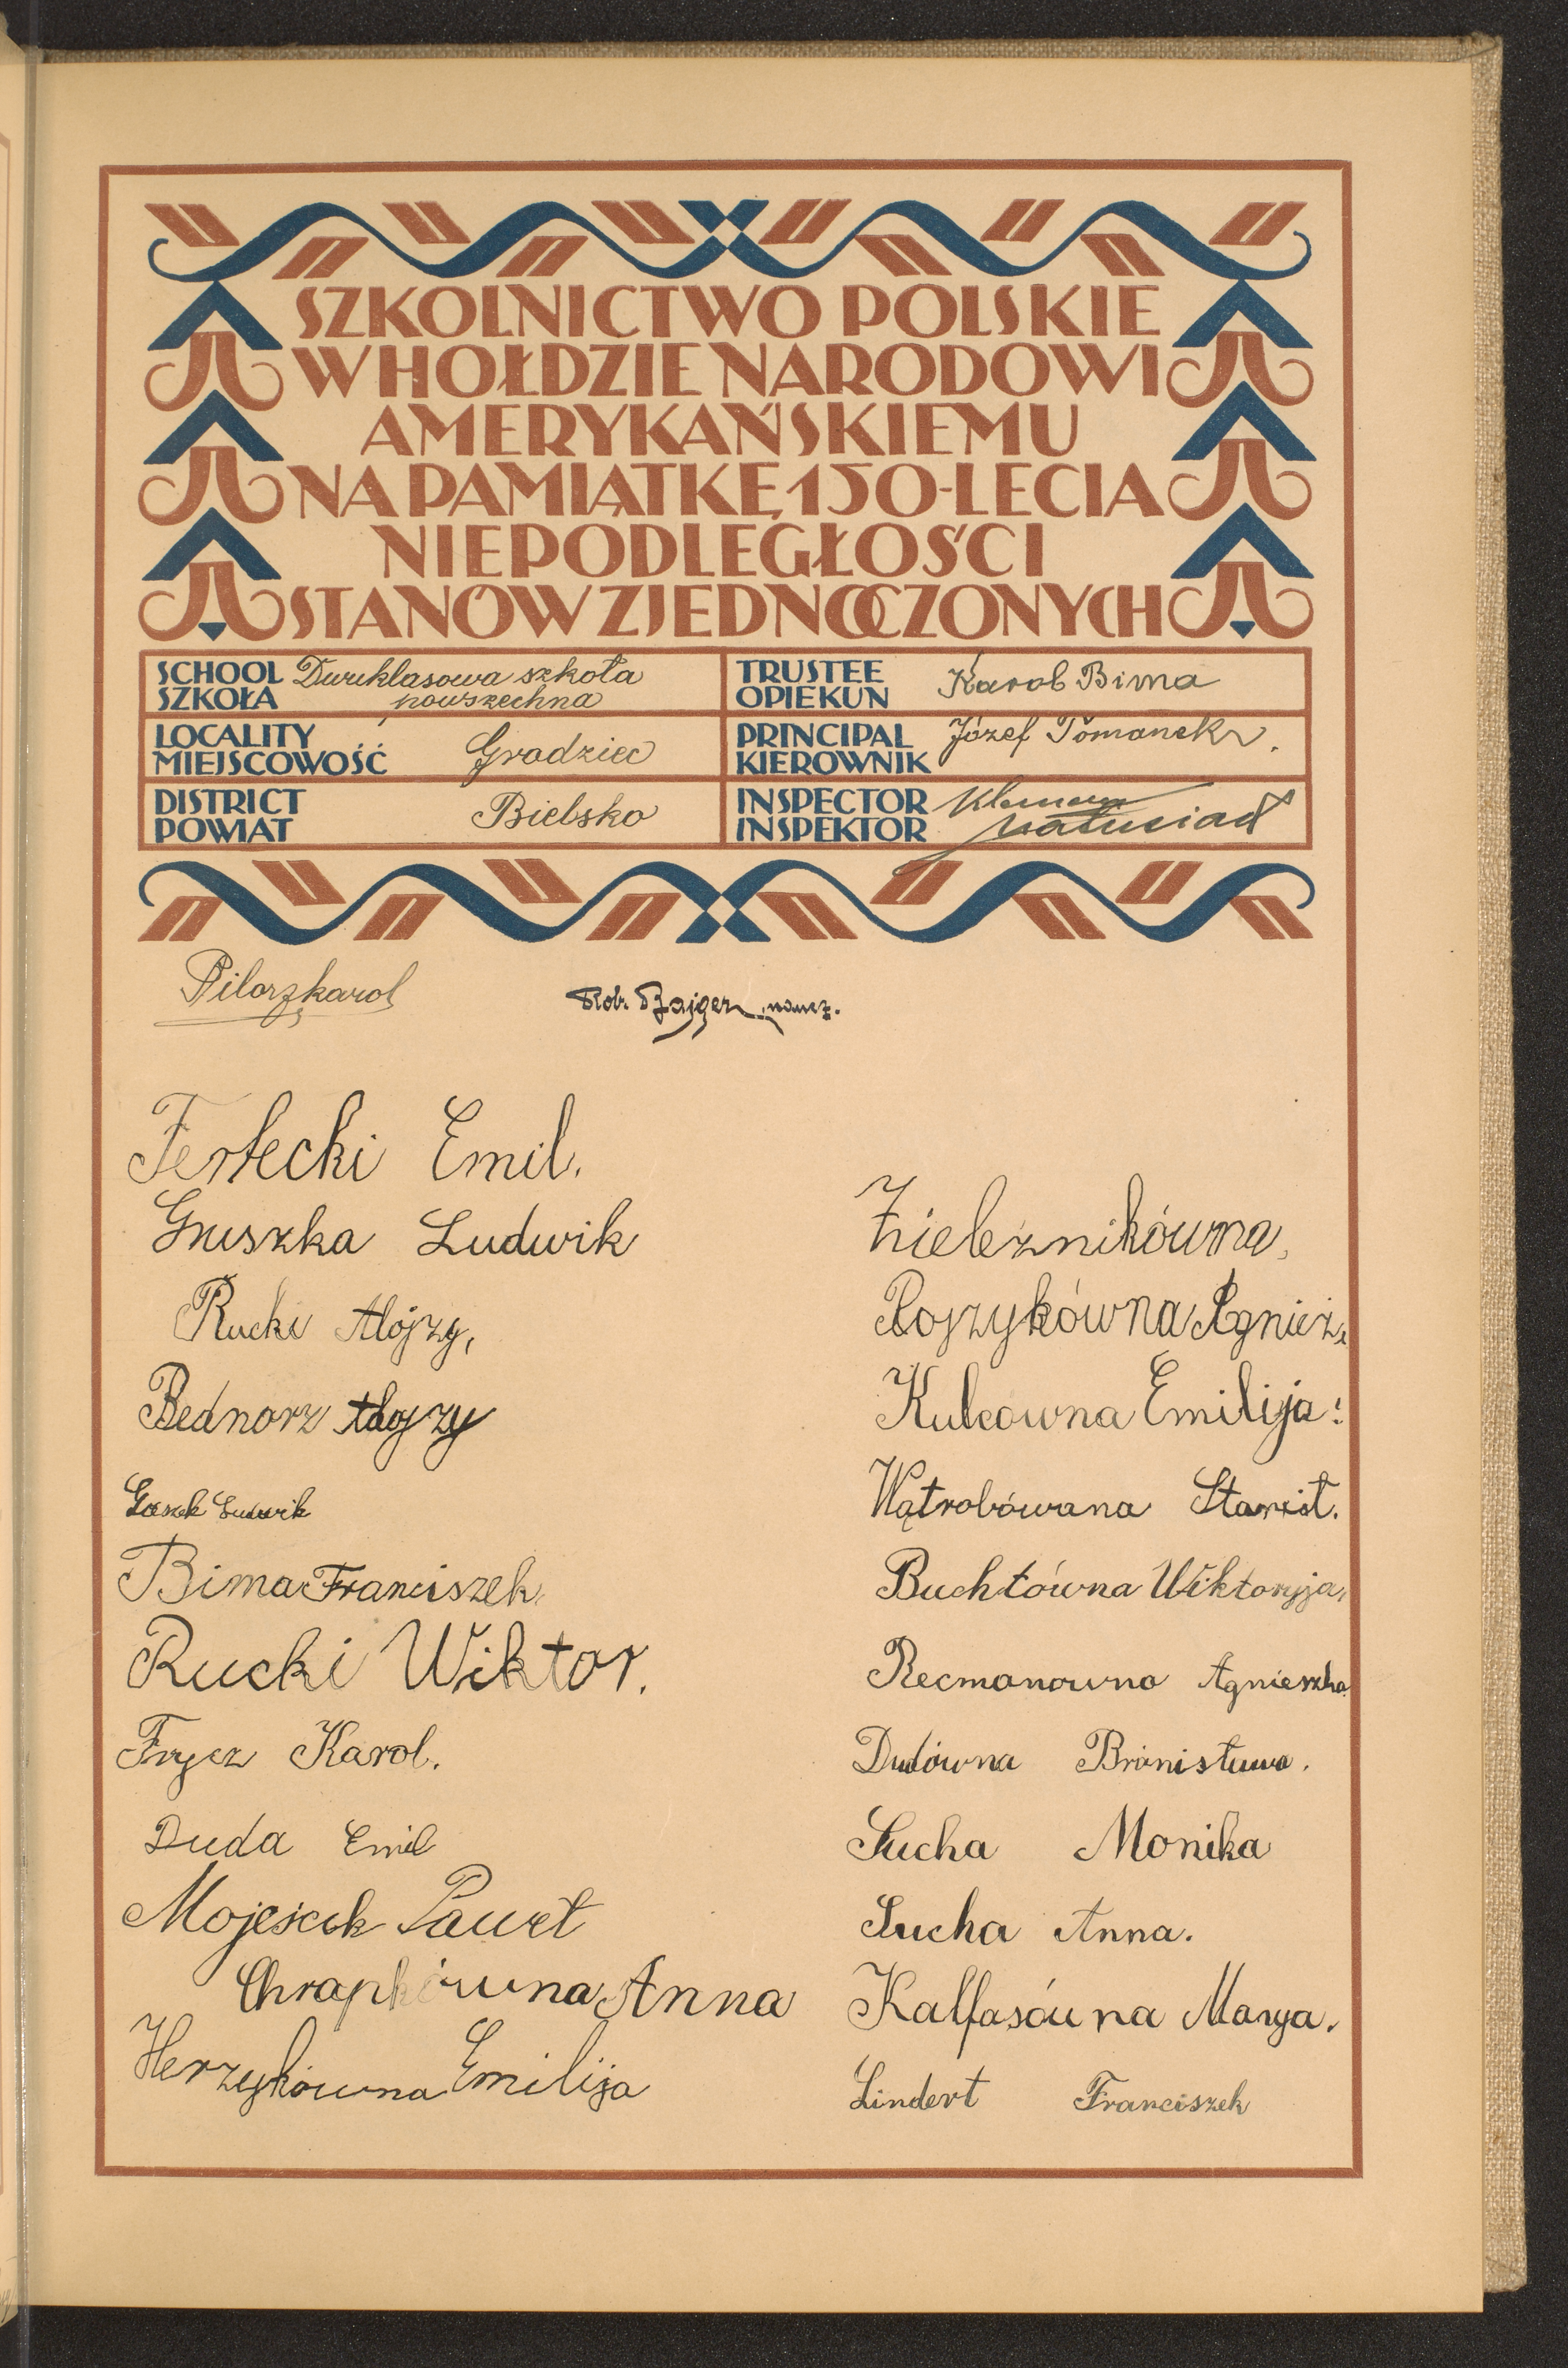 SZKOLNICTWO POLSKIE
W HOŁDZIE NARODOWI
AMERYKAŃSKIEMU
NA PAMIĄTKĘ 150-LECIA
NIEPODLEGŁOŚCI
STANÓW ZJEDNOCZONYCH
SCHOOL Dwuklasowa szkoła
SZKOŁA powszechna
TRUSTEE Karol Bima
OPIEKUN
LOCALITY Grodziec
MIEJSCOWOŚĆ
PRINCIPAL Józef Tomanek
KIEROWNIK
DISTRICT Bielsko
POWIAT
INSPECTOR Klemens
INSPEKTOR Matusiak
Pilorz Karol
Rob. naucz.
Ferfecki Emil.
Gruszka Ludwik
Rucki Alojzy,
Bednorz Alojzy
Ludwik
Bima Franciszek.
Rucki Wiktor.
Frycz Karol.
Duda Emil
Paweł
Chrapkówna Anna
Herzykówna Emilija
Zieleźnikówna,
Pojzykówna Agnież,
Kulcowna Emilija:
Wątrobówana Stanisł.
Buchtówna Wiktoryja,
Recmanowna Agnieszka
Dudówna Bronisława.
Sucha Monika
Sucha Anna.
Kalfasówna Marya.
Lindert Franciszek